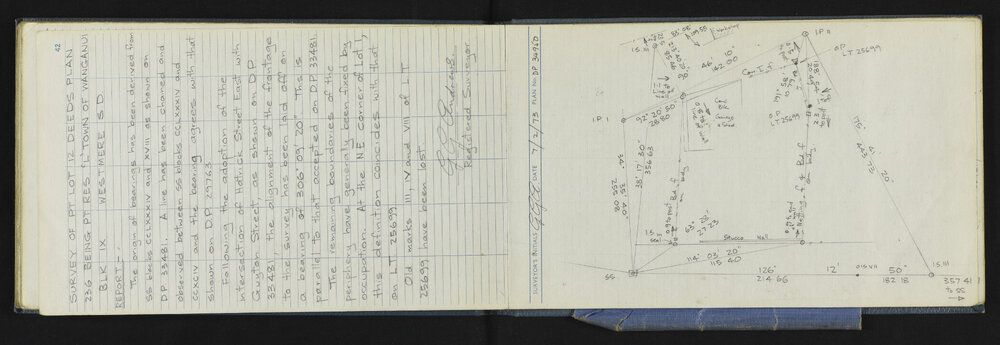 42
SURVEY OF PT LOT 12 DEEDS PLAN
236 BEING PT RES 'L' TOWN OF WANGANUI
BLK IX WESTMERE S.D.
REPORT:-
The origin of bearings has been derived from
SS blocks CCLXXXIV and XVIII as shown on
DP 33481. A line has been chained and
observed between SS blocks CCLXXXIV and
CCXCIV and the bearing agrees with that
shown on D.P. 29763
Following the adoption of the
intersection of Hatrick Street East with
Guyton Street, as shown on D.P.
33481 the alignment of the frontage
to the survey has been laid off on
a bearing of 306° 09' 20" This is
parallel to that accepted on D.P. 33481.
The remaining boundaries of the
periphery have generally been fixed by
occupation. At the NE corner of Lot 1,
this definition coincides with that
on LT 25699
Old marks III, IV and VIII of LT
25699 have been lost
Registered Surveyor
SURVEYOR'S INITIALS
DATE 7/2/73
PLAN No. DP 36960
I.P. II
O.P.
LT 25699
I.S.
Workshop
46° 10'
142 00
Conc. T.
I.P. I
92° 20' 50"
28 80
Garage
& Shed
O.P.
LT 25699
38° 17' 30"
356 63
34° 35' 40"
255 08
175° 20"
443 73
63° 28'
27 23
I.S.
seal
Stucco Wall
114° 03' 20"
115 40
SS
126° 12' 50"
214 66
O I.S VII
182 18
I.S. III
357 41
to SS